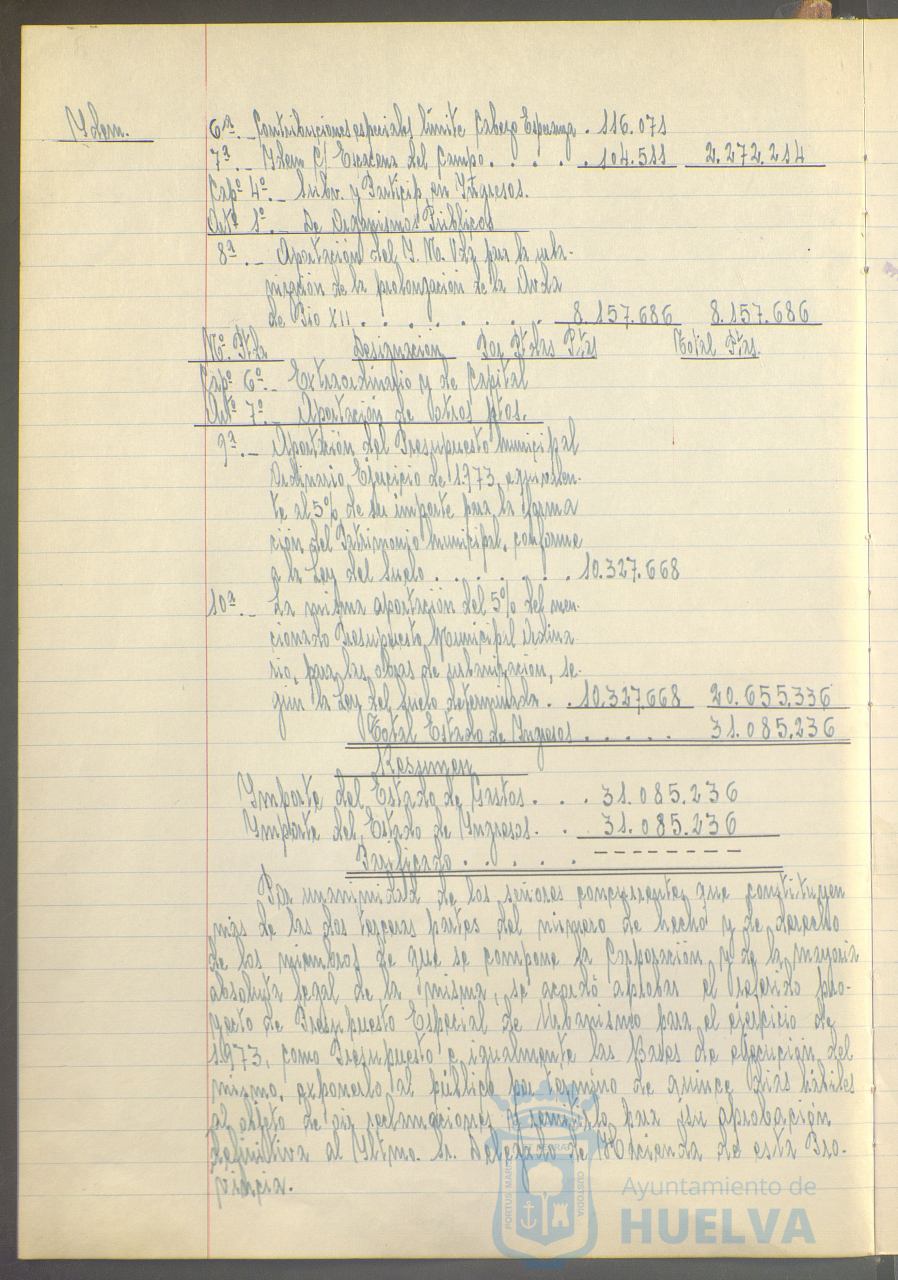 Idem.
6ª._ Contribuciones especiales límite Cabezo Esperanza . 116.071
7ª._ Idem C/ Escacena del Campo. . . . . 104.511 2.272.214
Capº 4º._ Subv. y Particip. en Ingresos.
Artº 1º._ De Organismos Públicos
8ª._ Aportación del I. N. Vda para la urba-
nización de la prolongación de la Avda
de Pio XII . . . . . . . . . 8.157.686 8.157.686
Nº. Ptda Designación Por Ptdas Ptas Total Ptas.
Capº 6º._ Extraordinario y de Capital
Artº 7º._ Aportación de otros ptos.
9ª._ Aportación del Presupuesto Municipal
Ordinario Ejercicio de 1.973, equivalen-
te al 5% de su importe para la forma
ción del Patrimonio Municipal, conforme
a la Ley del Suelo . . . . . . . 10.327.668
10ª._ La misma aportación del 5% del men-
cionado Presupuesto Municipal Ordina
rio, para las obras de urbanización, se-
gún la Ley del Suelo determinada . . 10.327.668 20.655.336
Total Estado de Ingresos . . . . . 31.085.236
Resumen
Importe del Estado de Gastos . . . 31.085.236
Importe del Estado de Ingresos. . . 31.085.236
. . . . . . _ _ _ _ _ _ _ _
Por unanimidad de los señores concurrentes que constituyen
más de las dos terceras partes del número de hecho y de derecho
de los miembros de que se compone la Corporación y de la mayoria
absoluta legal de la misma, se acordó aprobar el referido pro-
yecto de Presupuesto Especial de Urbanismo para el ejercicio de
1.973, como Presupuesto e igualmente las Bases de ejecución del
mismo, exponerlo al público por término de quince dias hábiles
al objeto de oir reclamaciones y remitirlo para su aprobación
definitiva al Iltmo. Sr. Delegado de Hacienda de esta Pro-
vincia.
PORTUS MARIS
CUSTODIA
Ayuntamiento de
HUELVA